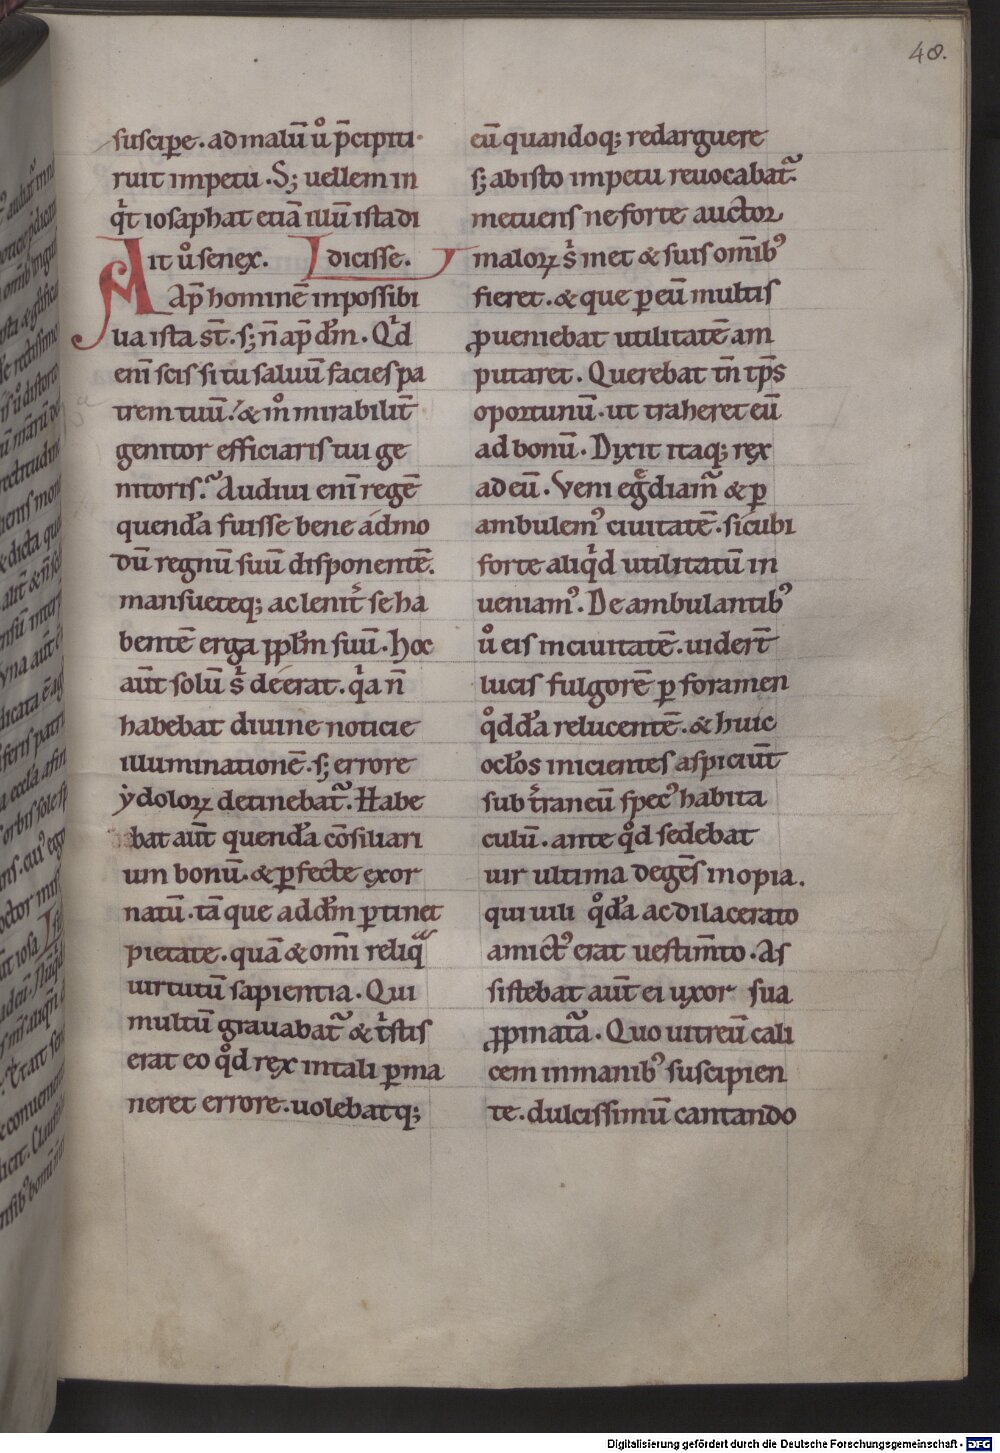 48.
suscipe. ad malū ů p̄cipiti
ruit impetu. S; uellem in
q̇t iosaphat etiā illū ista di
Ait ů senex. dicisse.
Ap̄ hominē inpossibi
lia ista st̄. s; n̄ ap̄ dm̄. Qͥd
eni scis si tu saluū facies pa
trem tuū. & mͦ mirabilit̄
genitor efficiaris tui ge
nitoris. Audiui eni regē
quenda fuisse bene admo
dū regnū suū disponentē.
mansueteq; ac lenit̄ se ha
bentē erga ppl̄m suū. Hoc
aūt solū sͥ deerat. qͥa n̄
habebat diuine noticie
illuminationē. s; errore
ẏdoloꝝ detinebat᷑. Habe
bat aūt quenda cōsiliari
um bonū. & ꝑfecte exor
natū. tā que ad dm̄ ꝑtinet
pietate. quā & omī reliqᷓ
uirtutū sapientia. Qui
multū grauabat᷑ & tͥstis
erat eo qͦd rex in tali ꝑma
neret errore. uolebatq;
eū quandoq; redarguere
s; ab isto impetu reuocabat᷑.
metuens ne forte auctor
maloꝝ sͥ met & suis omībꝰ
fieret. & que ꝑ eū multis
ꝓueniebat utilitatē am
putaret. Querebat tn̄ tp̄s
oportunū. ut traheret eū
ad bonū. Dixit itaq; rex
ad eū. Veni egͤdiam᷑ & ꝑ
ambulemꝰ ciuitatē. sicubi
forte aliqͥd utilitatū in
ueniamꝰ. Deambulantibꝰ
ů eis in ciuitatē. uidert̄
lucis fulgorē ꝑ foramen
qͦdda relucentē. & huic
oclos inicientes aspiciūt
subtͬraneū specꝰ habita
culū. ante qͦd sedebat
uir ultima degēs inopia.
qui uili qͦda ac dilacerato
amictꝰ erat uestim̄to. As
sistebat aūt ei uxor sua
ꝓpinata. Quo uitreū cali
cem in manibꝰ suscipien
te. dulcissimū cantando
Digitalisierung gefördert durch die Deutsche Forschungsgemeinschaft - DFG